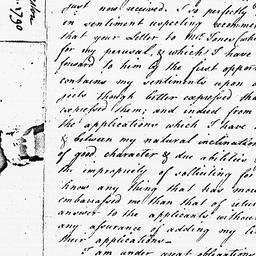 just now received. I is perfectly
in sentiment respecting recomme
that your Letter to Mr. Jones sho
for my perusal, & which I have
forward to him by the first oppor
contains my sentiments upon
jects though better expressed tha
expressed them; and indeed from
the applications which I have
& between my natural inclination
of good character & due abilities &
the impropriety of solliciting for
know any thing that has mor
embarrassed me than that of retur
answer to the applicants withou
any assurance of adding my li
their applications—
I am under great obligations
1790